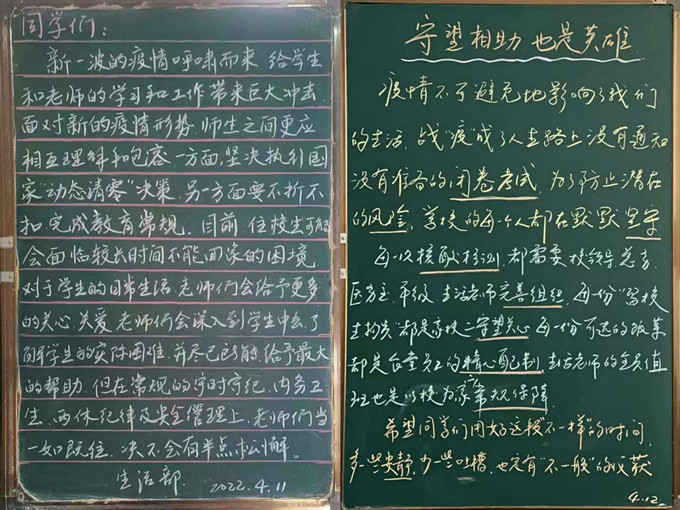 同学们：
新一波的疫情呼啸而来 给学生
和老师的学习和工作带来巨大冲击.
面对新的疫情形势.师生之间更应
相互理解和包容.一方面,坚决执行国
家"动态清零"决策.另一方面要不折不
扣完成教育常规.目前.住校生可能
会面临较长时间不能回家的困境
对于学生的日常生活.老师们会给予更多
的关心.关爱.老师们会深入到学生中去.了
解学生的实际困难.并尽己所能给予最大
的帮助.但在常规的守时守纪.内务卫
生.两休纪律及安全管理上.老师们当
一如既往.决不会有半点松懈.
生活部. 2022.4.11
守望相助 也是英雄
疫情不可避免地影响了我们
的生活.战"疫"成了人生路上没有通知
没有准备的闭卷考试.为了防止潜在
的风险,学校的每一个人都在默默坚守
每一次核酸检测.都需要校领导
年级.生活老师完善组织.每一份
都是学校守望关心.每一份可选的饭菜
都是食堂员工的精心配制.生活老师的全员值
班也是以校为家常规保障
希望同学们用好这段不一样的时间.
多一些安静.少一些吐槽.也定有"不一般"的收获
4.12.